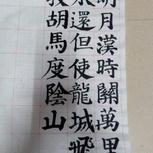 明月漢時關萬里
未還但使龍城飛
教胡馬度陰山